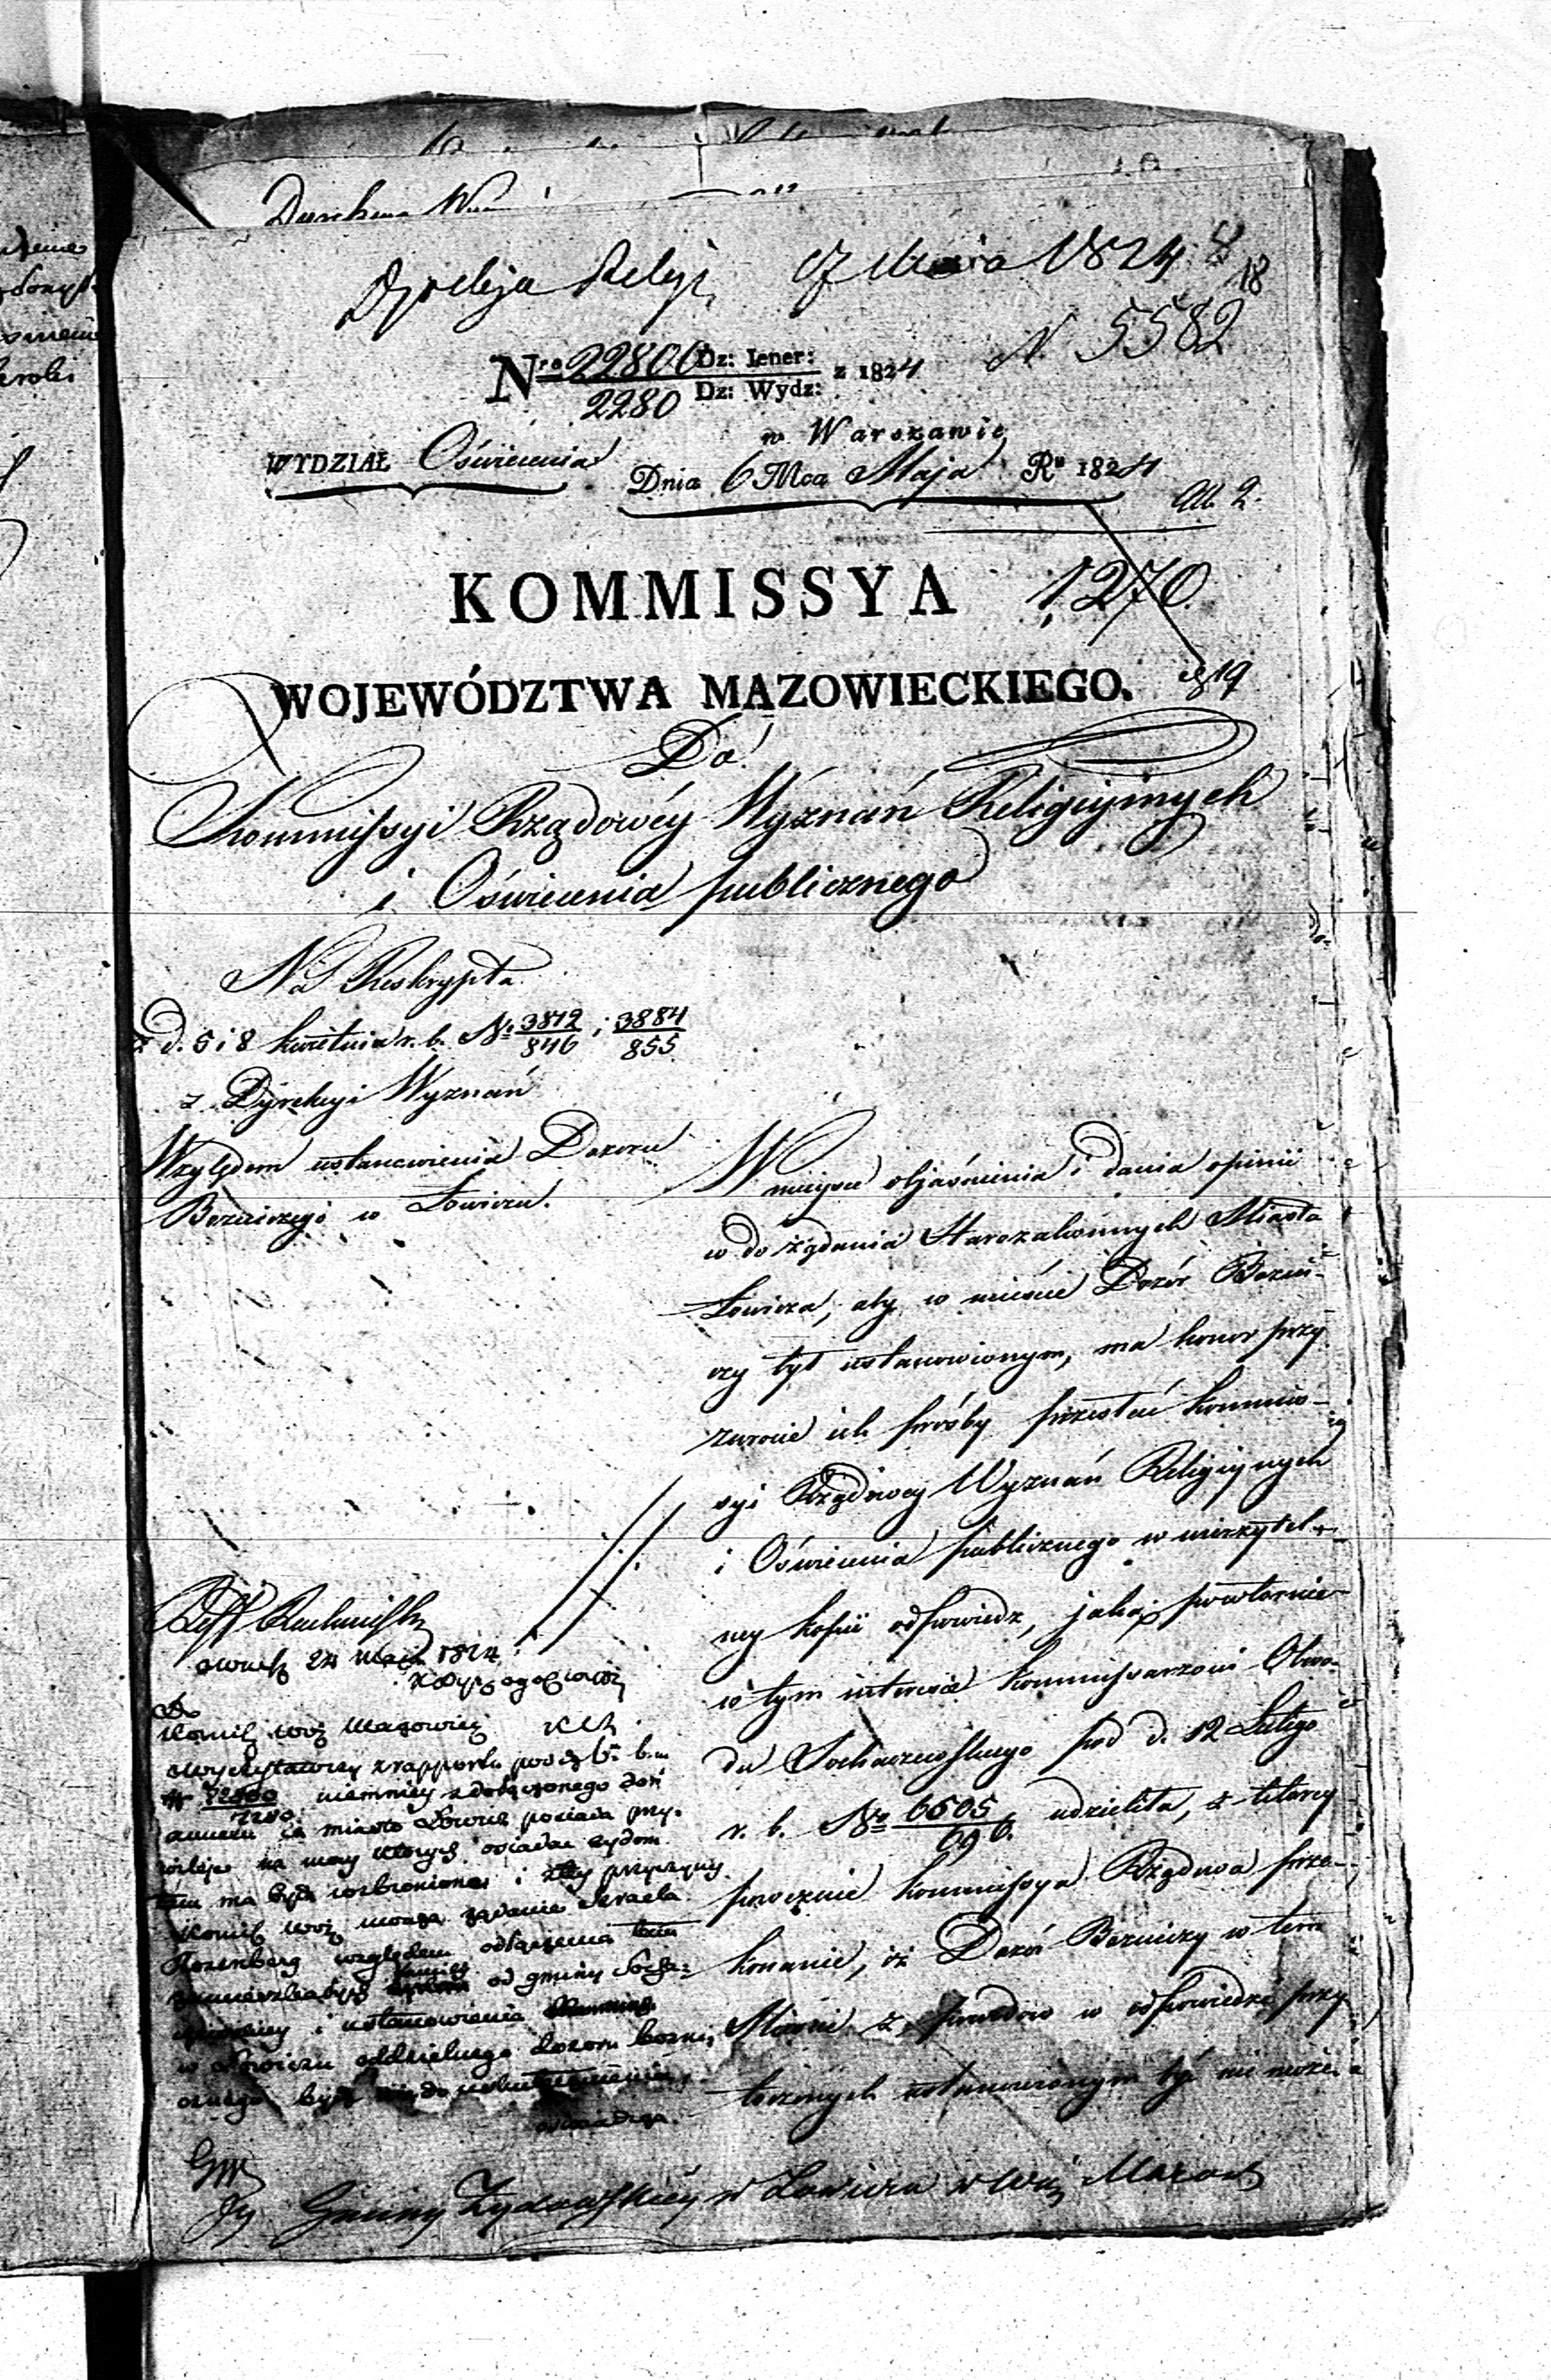 17 Maia 1824
18
N 5582
Nro 22806 Dz: Iener: z 1824
2280 Dz: Wydz:
w Warszawie
WYDZIAŁ Oświecenia
Dnia 6 Mca Maja Ru 1824
KOMMISSYA
1270.
WOJEWÓDZTWA MAZOWIECKIEGO.
Do
Kommissyi Rządowéy Wyznań Religiynych
i Oświecenia publicznego
Na Reskrypta
z d. 5 i 8 kwietnia r. b. No 3812/846 i 3884/855
z Dyrekcyi Wyznań
Względem ustanowienia Dozoru
Bożniczego w Łowiczu.
W mieysce objaśnienia i dania opinii
w do żądania Starozakonnych Miasta
Łowicza, aby w mieście Dozór Bożni-
czy był ustanowionym, ma honor przy
zwrocie ich prośby przesłać Kommis-
syi Rządowey Wyznań Religiynych
i Oświecenia publicznego w wierzytel-
ney kopii odpowiedz, jaką powtórnie
w tym interesie Kommissarzowi Obwo-
du Sochaczewskiego pod d. 12 Lutego
r. b. No 6605/696. udzieliła, z którey
poweźmie Kommissya Rządowa prze-
konanie, iż Dozór Bożniczy w tem
Mieście z powodów w odpowiedzi przy
toczonych ustanowionym być nie może.
24 maja 1824
Do
Komis Woj Mazowiec
wyczytawszy z rapportu pod d. 6 b. m.
N 22806/2280 niemniey z dołączonego doń
że miasto Łowicz posiada przy-
wileje na mocy których osiadać żydom
tam ma być wzbroniono i z tey przyczyny
Komis Woj uważa żądanie Izraela
Rozenberg względem odłączenia
od gminy Socha-
czewskiey i ustanowienia
w Łowiczu oddzielnego dozoru bożni-
cznego być
Gminy Żydowskiéy w Łowiczu w Woj Mazow